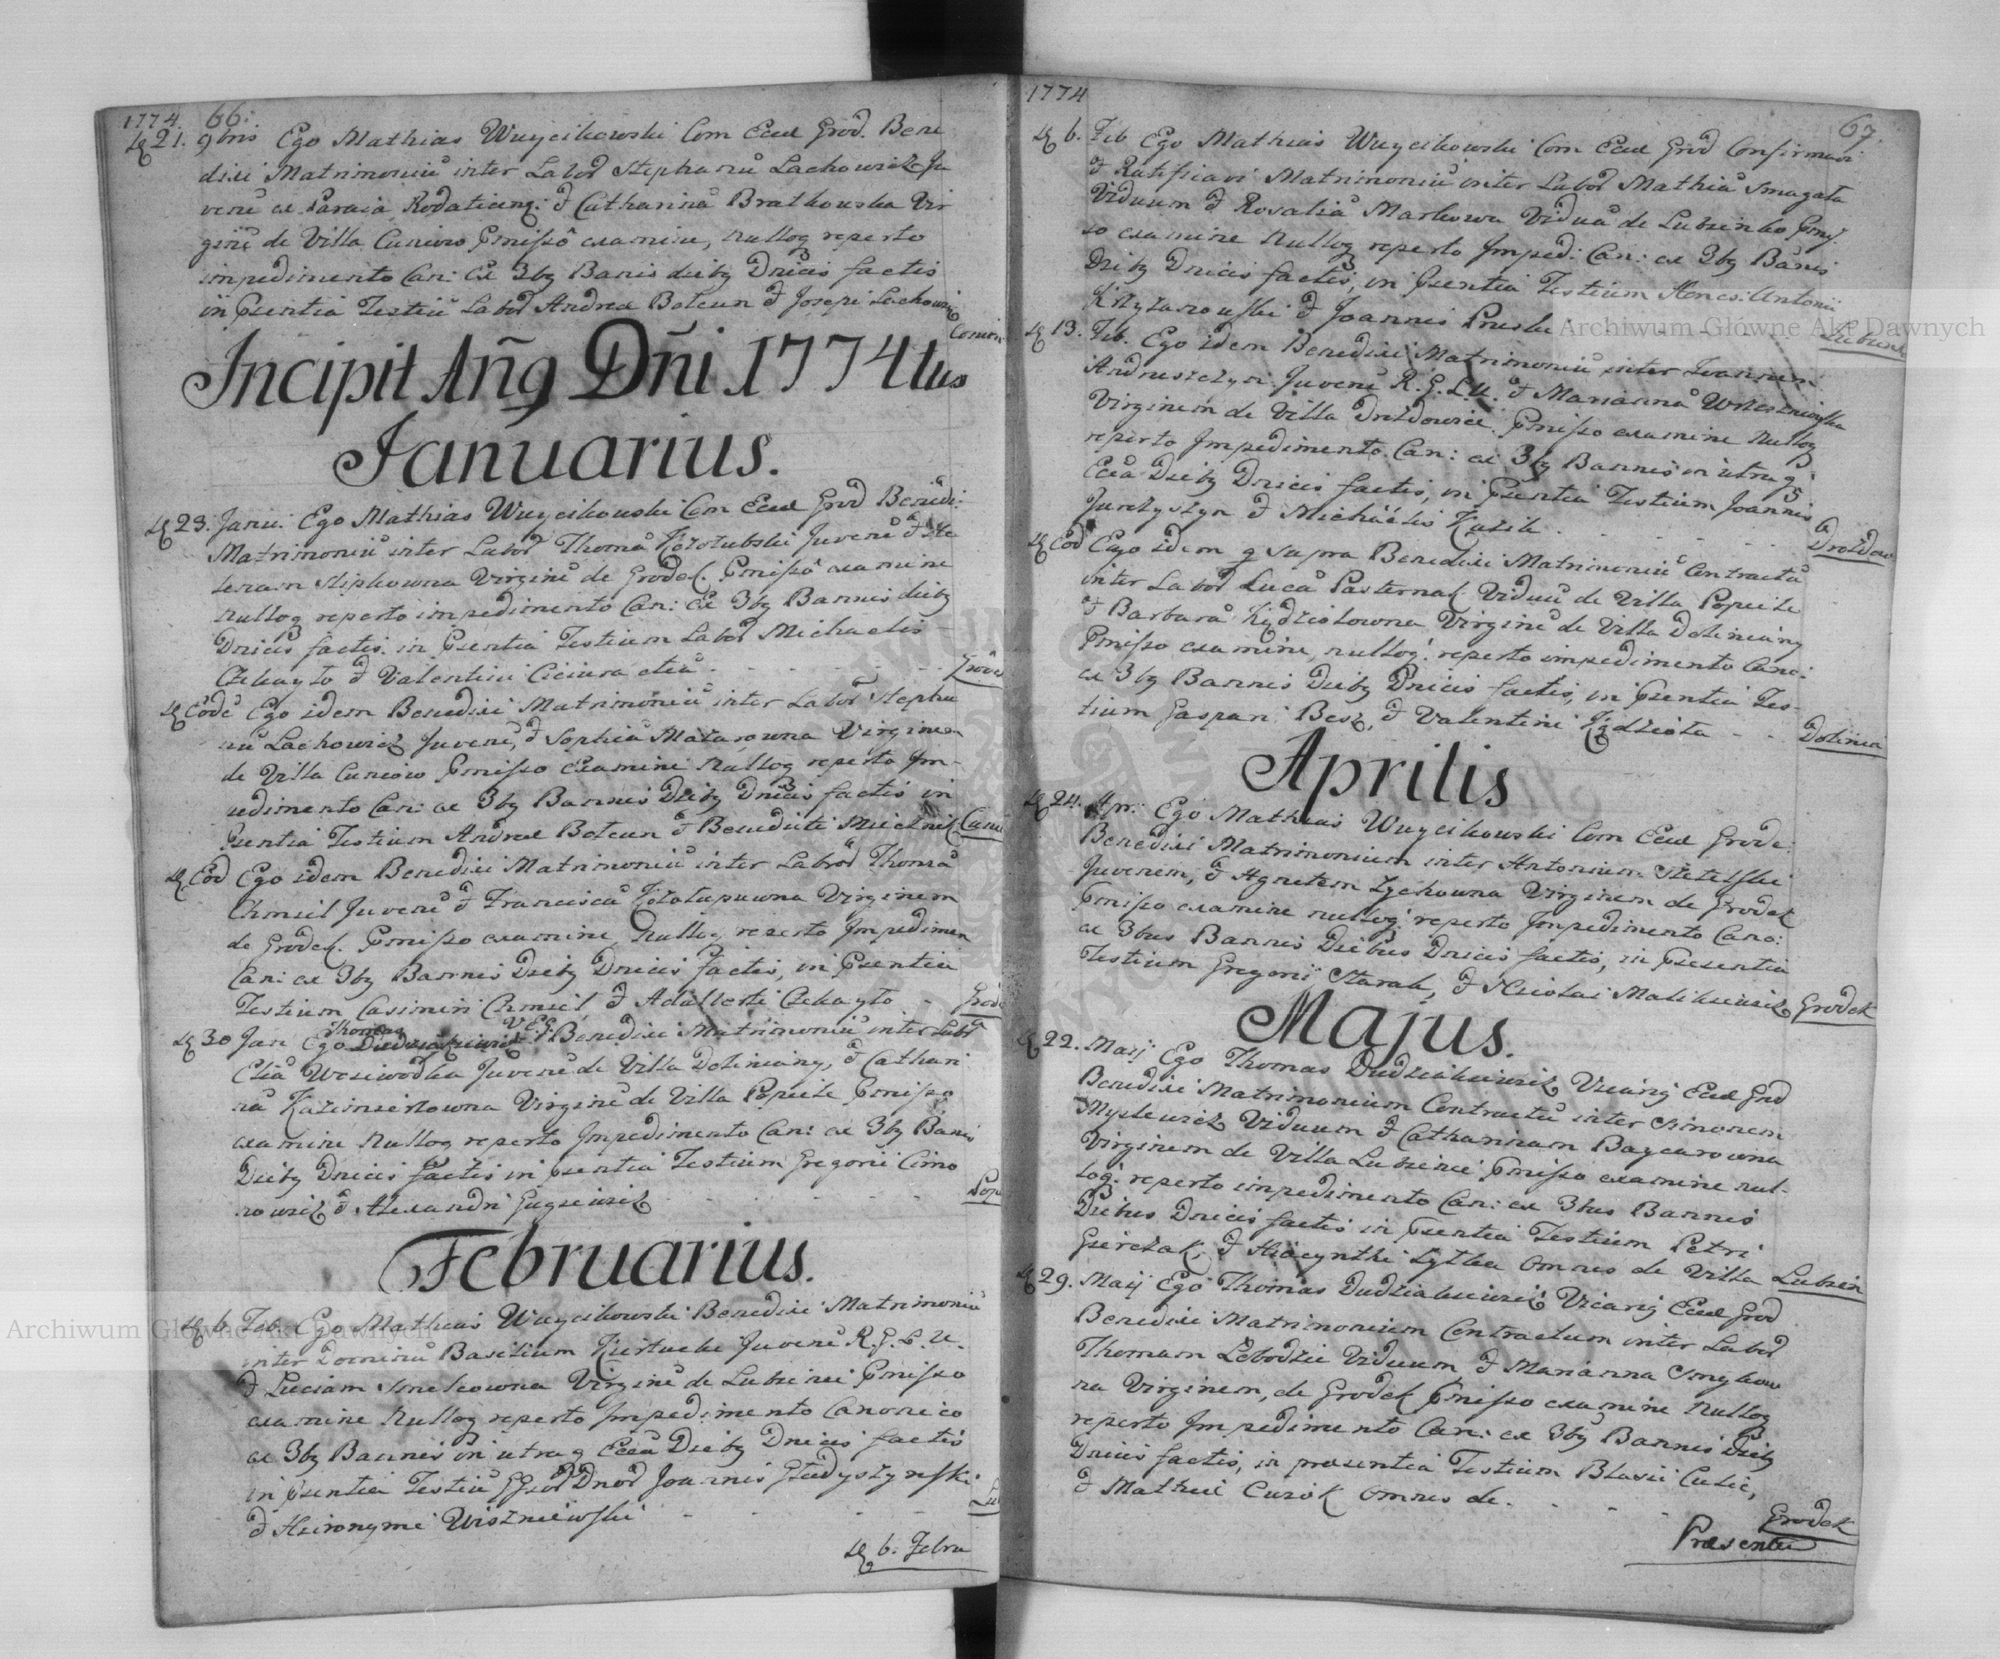 1774. 66.
D 21. 9bris Ego Mathias Wuycikowski Com Eccl Grod. Bene
dixi Matrimoniu inter Labor Stephanu Lachowicz Ju
venē ex Paraia Rodaticeng: & Catharinā Bratkowska Vir
ginē de Villa Cuniow Pmisso examine, nulloq reperto
impedimento Can: ex 3bg Banis diebg Dnicis factis
in Psentia Testiū Labor Andrea Botcun & Josepi Lachowic
Coniow
Incipit Añ9 Dñi 1774tus
Januarius.
D 23. Janu: Ego Mathias Wuycikowski Com Eccl Grod Benedi:
Matrimoniū inter Labor Thomā Kozolubski Juvenē & He
lenam Stipkowna Virginē de Grodek. Pmisso examine
nulloq reperto impedimento Can: Ex 3bg Bannis diebg
Dnicis factis in Psentia Testium Labor Michaelis
Czekayto & Valentini Ciciura etiā - - - - - - Grode
D Eodē Ego idem Benedixi Matrimoniū inter Labor Stepha
nū Lachowicz Juvenē, & Sophiā Mazurowna Virginem
de Villa Cuniow Pmisso Examine Nulloq reperto Im-
pedimento Can: ex 3bg Bannis Diebg Dnicis factis in
Psentia Testium Andrea Botcun & Benedicti Mielnik Cuni
D Eod Ego idem Benedixi Matrimoniū inter Labor Thomā
Chmiel Juvenē & Franciscā Kozolupuwna Virginem
de Grodek. Pmisso examine Nulloq reperto Impedimen
Can: ex 3bg Bannis Diebg Dnicis factis, in Psentia
Testium Casimiri Chmiel, & Adalberti Czekayto - Grode
Thomas V. E. G.
D 30 Jan Ego Dudziakiewicz Benedixi Matrimoniū inter Labr
Eliā Wesiwodka Juvenē de Villa Doliniany, & Cathari
nā Kazimirowna Virginē de Villa Popiele Pmisso
examine Nulloq reperto Impedimento Can: ex 3bg Banis
Diebg Dnicis factis in psentia Testium Gregorii Cimo
nowicz & Alexandri Gugiewicz - - - - - - Popi
Februarius.
D 6. Feb. Ego Mathias Wuycikowski Benedixi Matrimoniū
inter Dominū Basilium Kurtucki Juvenē R. G. L. U.
& Luciam Smekowna Virginē de Lubinei Pmisso
examine Nulloq reperto Impedimento Canonico
ex 3bg Bannis in utraq Ecclā Diebg Dnicis factis
in Psentia Testiū Gsor Dnor Joannis Gładyszynski
& Hieronymi Wiszniewski - - - Lu
D 6. Febru
1774
67.
D 6. Feb Ego Mathias Wuycikowski Com Eccl Grod Confirmavi
& Ratificavi Matrimoniū inter Labor Mathiā Smagata
Viduum & Rosaliā Markowa Viduā de Lubzinko Pmis
so examine Nulloq reperto Imped: Can: ex 3bg Banis
Diebg Dnicis factis, in Psentia Testium Hones: Antonii
Krzyzanowski & Joannis Pruski - - - Lubine
D 13. Feb. Ego idem Benedixi Matrimoniū inter Joannem
Andruszczyn Juvenē R. G. L. U. & Mariannā
Virginem de Villa Drozdowice. Pmisso examine Nulloq
reperto Impedimento Can: ex 3bg Bannis in utraq
Ecclā Diebg Dnicis factis, in Psentia Testium Joannis
Jurczyszyn & Michaelis Kuzik - - - - Drozdow
D Eod Ego idem q supra Benedixi Matrimoniū Contractū
inter Labor Lucā Pasternak Viduū de Villa Popiele
& Barbarā Kędziolowna Virginē de Villa Doliniany
Pmisso examine, nulloq: reperto impedimento Cano:
ex 3bg Bannis Diebg Dnicis factis, in Psentia Tes-
tium Gaspari Besz, & Valentini Kędziota - - Dolinia
Aprilis
D 24. Apr: Ego Mathias Wuycikowski Com Eccl Grode:
Benedixi Matrimonium inter Antonium Stetelski
Juvenem, & Agnetem Zychowna Virginem de Grodek
Pmisso examine nulloq: reperto Impedimento Cano:
ex 3bus Bannis Diebus Dnicis factis, in Psentia
Testium Gregorii Starak, & Nicolai Malikiewicz Grodek
Majus.
D 22. Maij Ego Thomas Dudziakiewicz Vicarig Eccl Grod
Benedixi Matrimonium Contractū inter Simonem
Myslewicz Viduum & Catharinam Baycarowna
Virginem de Villa Lubzinei Pmisso examine nul-
loq: reperto impedimento Can: ex 3bus Bannis
Diebus Dnicis factis in Psentia Testium Petri
Gierczak, & Hiacynthi Zytka Omnes de Villa Lubzin
D 29. Maij Ego Thomas Dudziakiewicz Vicarig Eccl Grod
Benedixi Matrimonium Contractum inter Labor
Thomam Lebodzic Viduum & Marianna Smykow
na Virginem, de Grodek Pmisso examine Nulloq
reperto Impedimento Can: ex 3bg Bannis Diebg
Dnicis factis, in praesentia Testium Blasii Culic,
& Mathei Curok Omnes de - - - Grodek
Praesentu
Archiwum Główne Akt Dawnych
Archiwum Główne Akt Dawnych